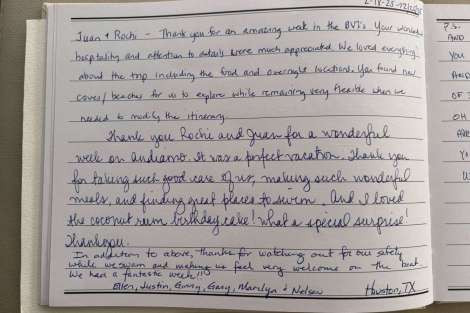 2-18-25-
Juan + Rochi - Thank you for an amazing week in the BVI's. Your wonderful
hospitality and attention to details were much appreciated. We loved everything
about the trip including the food and overnight locations. You found new
coves/beaches for us to explore while remaining very flexible when we
needed to modify the itinerary
Thank you Rochi and Juan for a wonderful
week on Andiamo. It was a perfect vacation. Thank you
for taking such good care of us, making such wonderful
meals, and finding great places to swim. And I loved
the coconut rum birthday cake! What a special surprise!
Thank you.
In addition to above, thanks for watching out for our safety
while we swam and making us feel very welcome on the boat
We had a fantastic week!!!
Ellen, Justin, Ginny, Gary, Marilyn + Nelson Houston, TX
P.S.
AND
YOU
OF
OH
ARE
YO